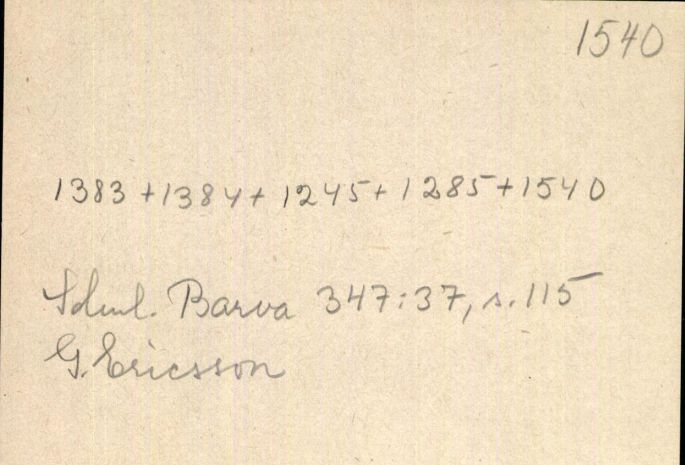 1540
1383 + 1384 + 1245 + 1285 + 1540
Sdml. Barva 347:37, s. 115
G. Ericsson